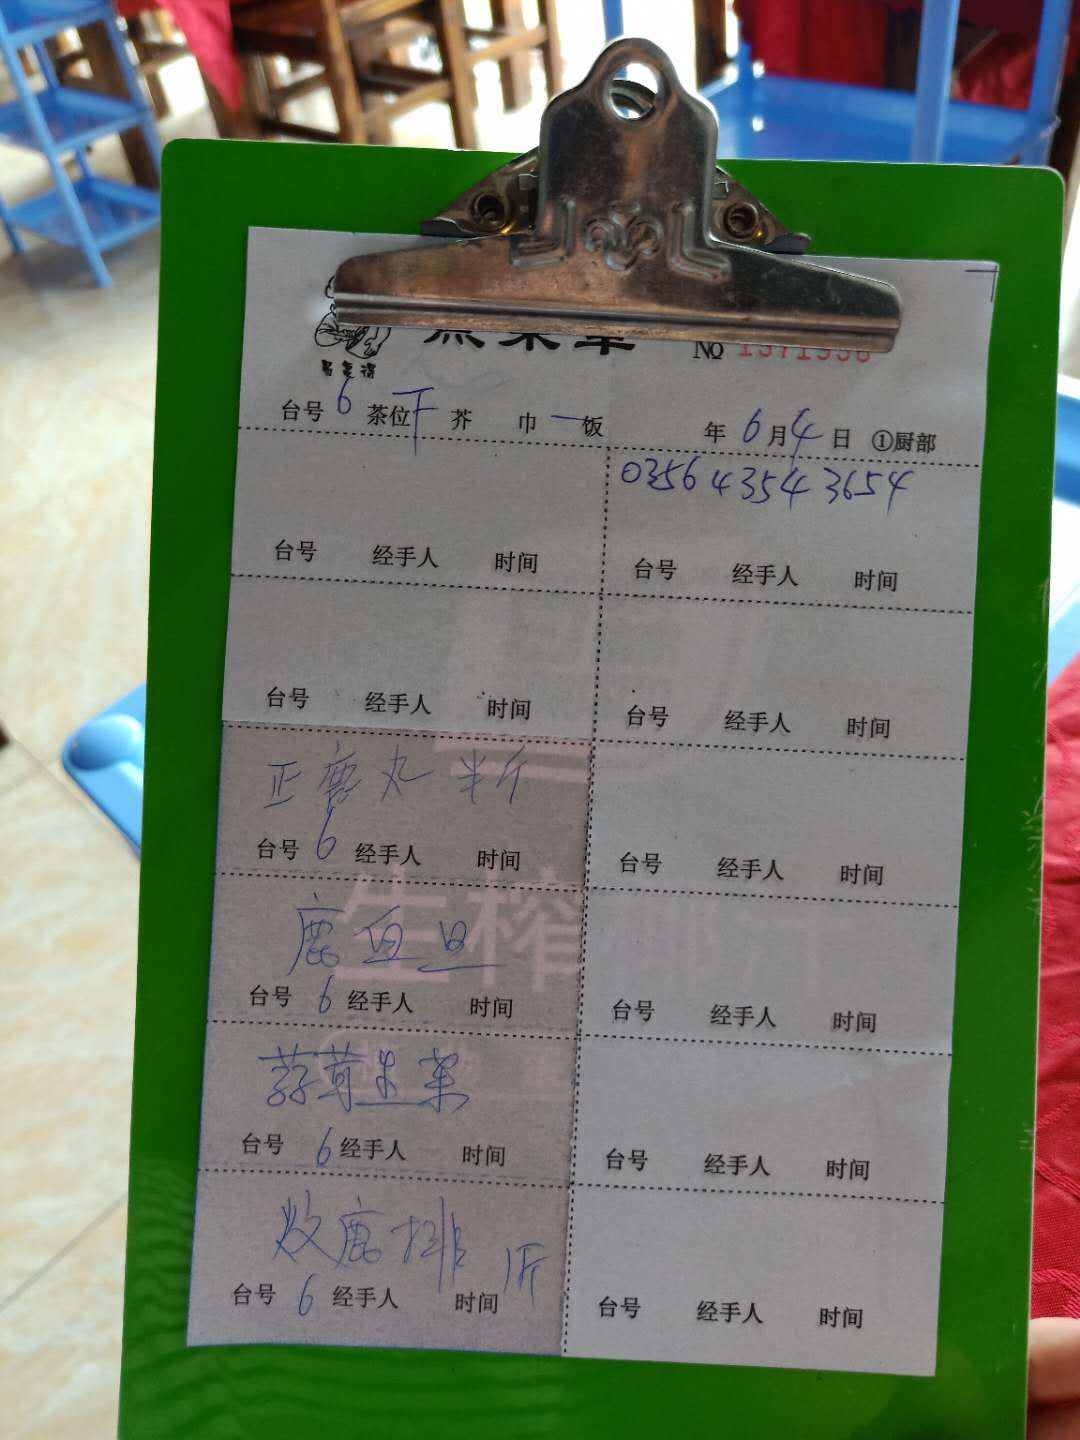 易定得
点菜单 NO 1371936
台号 6 茶位 下 芥 巾 一 饭 年 6 月 4 日 ①厨部
0356 4354 3654
台号 经手人 时间 台号 经手人 时间
台号 经手人 时间 台号 经手人 时间
正鹿丸 半斤
台号 6 经手人 时间 台号 经手人 时间
鹿血旦
生榨椰汁
台号 6 经手人 时间 台号 经手人 时间
台号 6 经手人 时间 台号 经手人 时间
鹿排 1斤
台号 6 经手人 时间 台号 经手人 时间